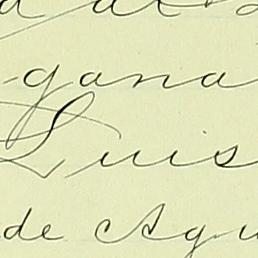 gana
Luis
de Agu